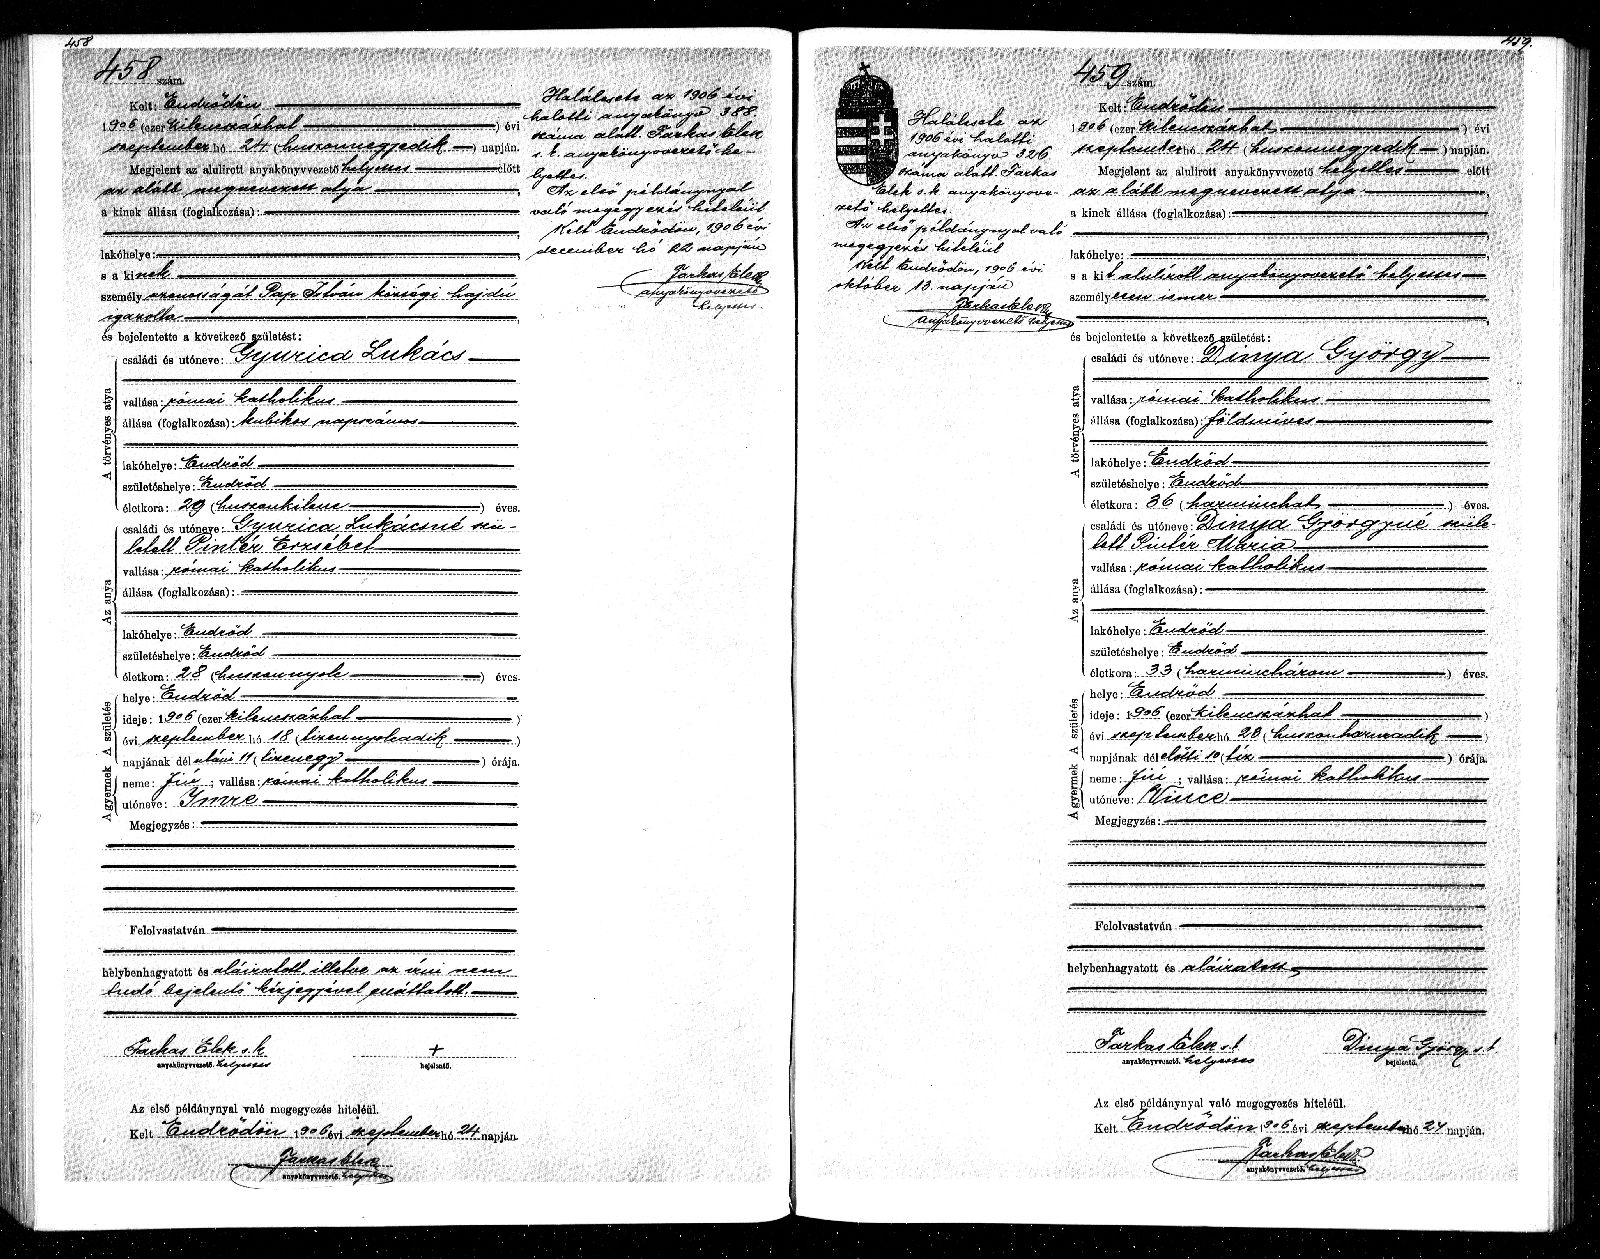 458
458 szám.
Kelt: Endrődön
1906 (ezer kilenczszázhat) évi
szeptember hó 24 (huszonnegyedik) napján.
Megjelent az alulirott anyakönyvvezető helyettes előtt
az alább megnevezett atya,
a kinek állása (foglalkozása):
lakóhelye:
s a kinek
személyazonosságát Pap István községi hajdú
igazolta
és bejelentette a következő születést:
A törvényes atya
családi és utóneve: Gyurica Lukács
vallása: római katholikus
állása (foglalkozása): kubikos napszámos
lakóhelye: Endrőd
születéshelye: Endrőd
életkora: 29 (huszonkilenc) éves.
Az anya
családi és utóneve: Gyurica Lukácsné szü-
letett Pintér Erzsébet
vallása: római katholikus
állása (foglalkozása):
lakóhelye: Endrőd
születéshelye: Endrőd
életkora: 28 (huszonnyolc) éves.
A születés
helye: Endrőd
ideje: 1906 (ezer kilenczszázhat)
évi szeptember hó 18 (tizennyolcadik)
napjának délutáni 11 (tizenegy) órája.
A gyermek
neme: fiú; vallása: római katholikus
utóneve: Imre
Megjegyzés:
Felolvastatván
helybenhagyatott és aláiratott, illetve az írni nem
tudó bejelentő kézjegyével elláttatott.
Farkas Elek s.k +
anyakönyvvezető. helyettes bejelentő.
Az első példánynyal való megegyezés hiteléül.
Kelt Endrődön 1906 évi szeptember hó 24 napján.
Farkas Elek
anyakönyvvezető. helyettes
Halálesete az 1906 évi
halotti anyakönyv 388.
száma alatt. Farkas Elek
s. k. anyakönyvvezető he-
lyettes.
Az első példánynyal
való megegyezés hiteléül
Kelt Endrődön, 1906 évi
december hó 22 napján
Farkas Elek
anyakönyvvezető
helyettes.
459.
459 szám.
Halálesete az
1906 évi halotti
anyakönyv 326
száma alatt Farkas
Elek s.k anyakönyvve-
zető helyettes.
Az első példánynyal való
megegyezés hiteléül
Kelt Endrődön, 1906 évi
október 13. napján
Farkas Elek
anyakönyvvezető helyettes
Kelt: Endrődön
1906 (ezer kilenczszázhat) évi
szeptember hó 24 (huszonnegyedik) napján.
Megjelent az alulirott anyakönyvvezető helyettes előtt
az alább megnevezett atya
a kinek állása (foglalkozása):
lakóhelye:
s a kit alulírott anyakönyvvezető helyettes
személyesen ismer
és bejelentette a következő születést:
A törvényes atya
családi és utóneve: Dinya György
vallása: római katholikus
állása (foglalkozása): földmíves
lakóhelye: Endrőd
születéshelye: Endrőd
életkora: 36 (harminchat) éves.
Az anya
családi és utóneve: Dinya Györgyné szüle-
tett Pintér Mária
vallása: római katholikus
állása (foglalkozása):
lakóhelye: Endrőd
születéshelye: Endrőd
életkora: 33 (harminchárom) éves.
A születés
helye: Endrőd
ideje: 1906 (ezer kilenczszázhat)
évi szeptember hó 23 (huszonharmadik)
napjának délelőtti 10 (tíz) órája.
A gyermek
neme: fiú; vallása: római katholikus
utóneve: Vince
Megjegyzés:
Felolvastatván
helybenhagyatott és aláiratott
Farkas Elek s.k Dinya György s.k
anyakönyvvezető. helyettes bejelentő.
Az első példánynyal való megegyezés hiteléül.
Kelt Endrődön 1906 évi szeptember hó 24 napján.
Farkas Elek
anyakönyvvezető. helyettes